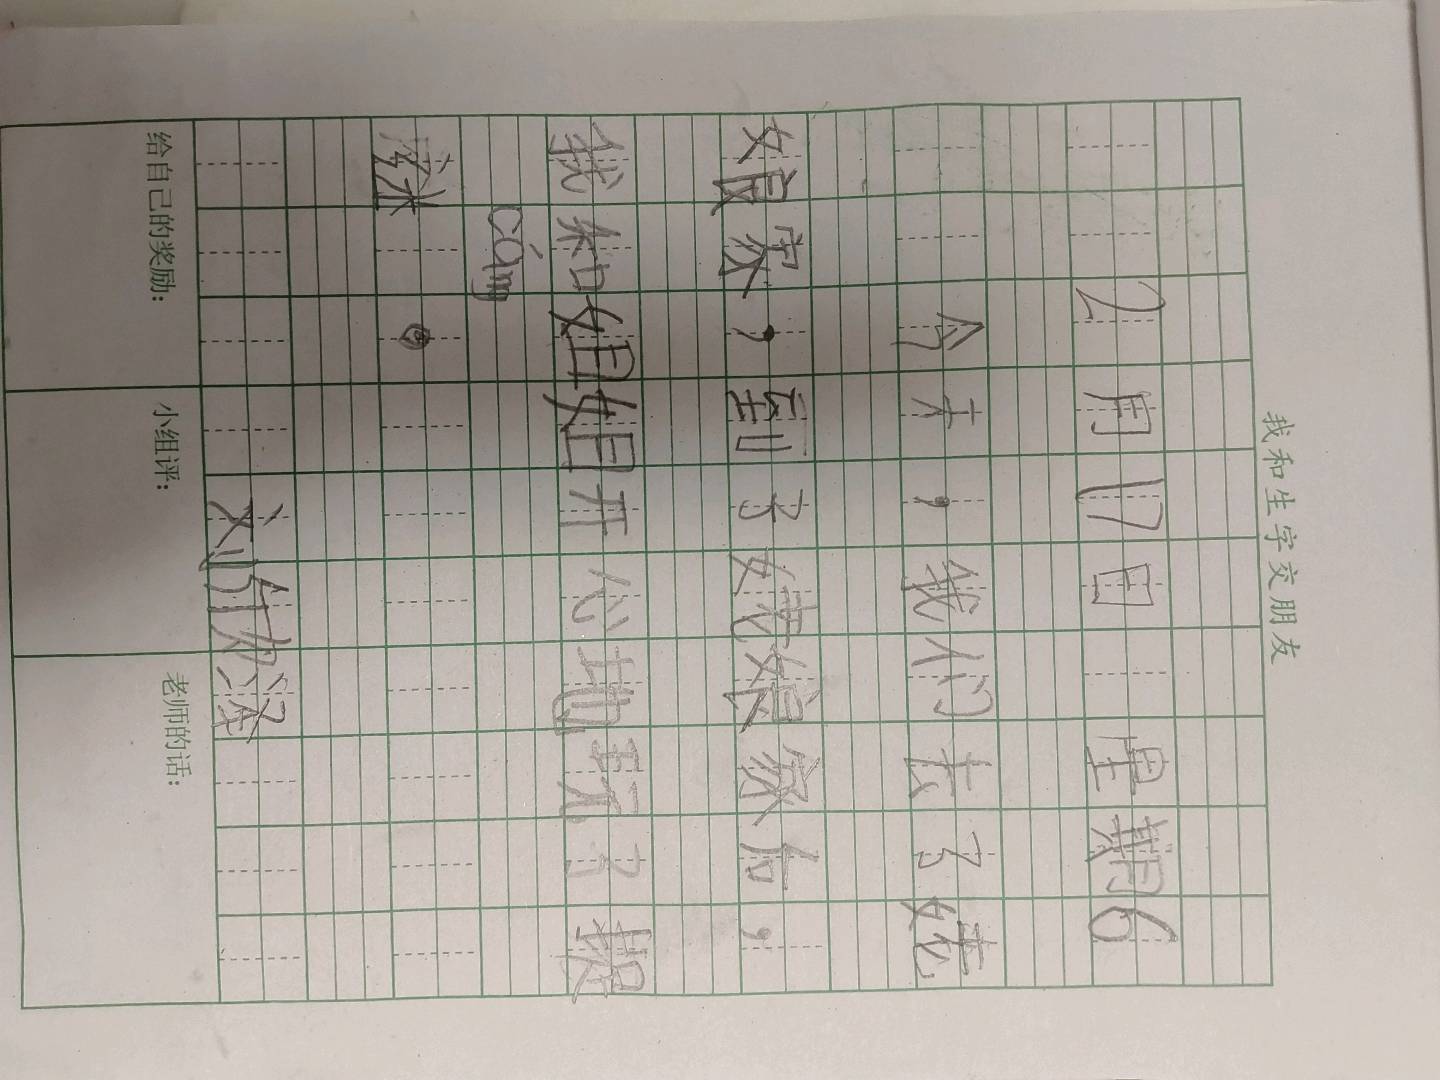 我和生字交朋友
2月17日 星期6
今天,我们去了姥
娘家,到了姥娘家后,
我和姐姐开心地玩了捉
cáng
迷 。
刘 泽
给自己的奖励: 小组评: 老师的话: